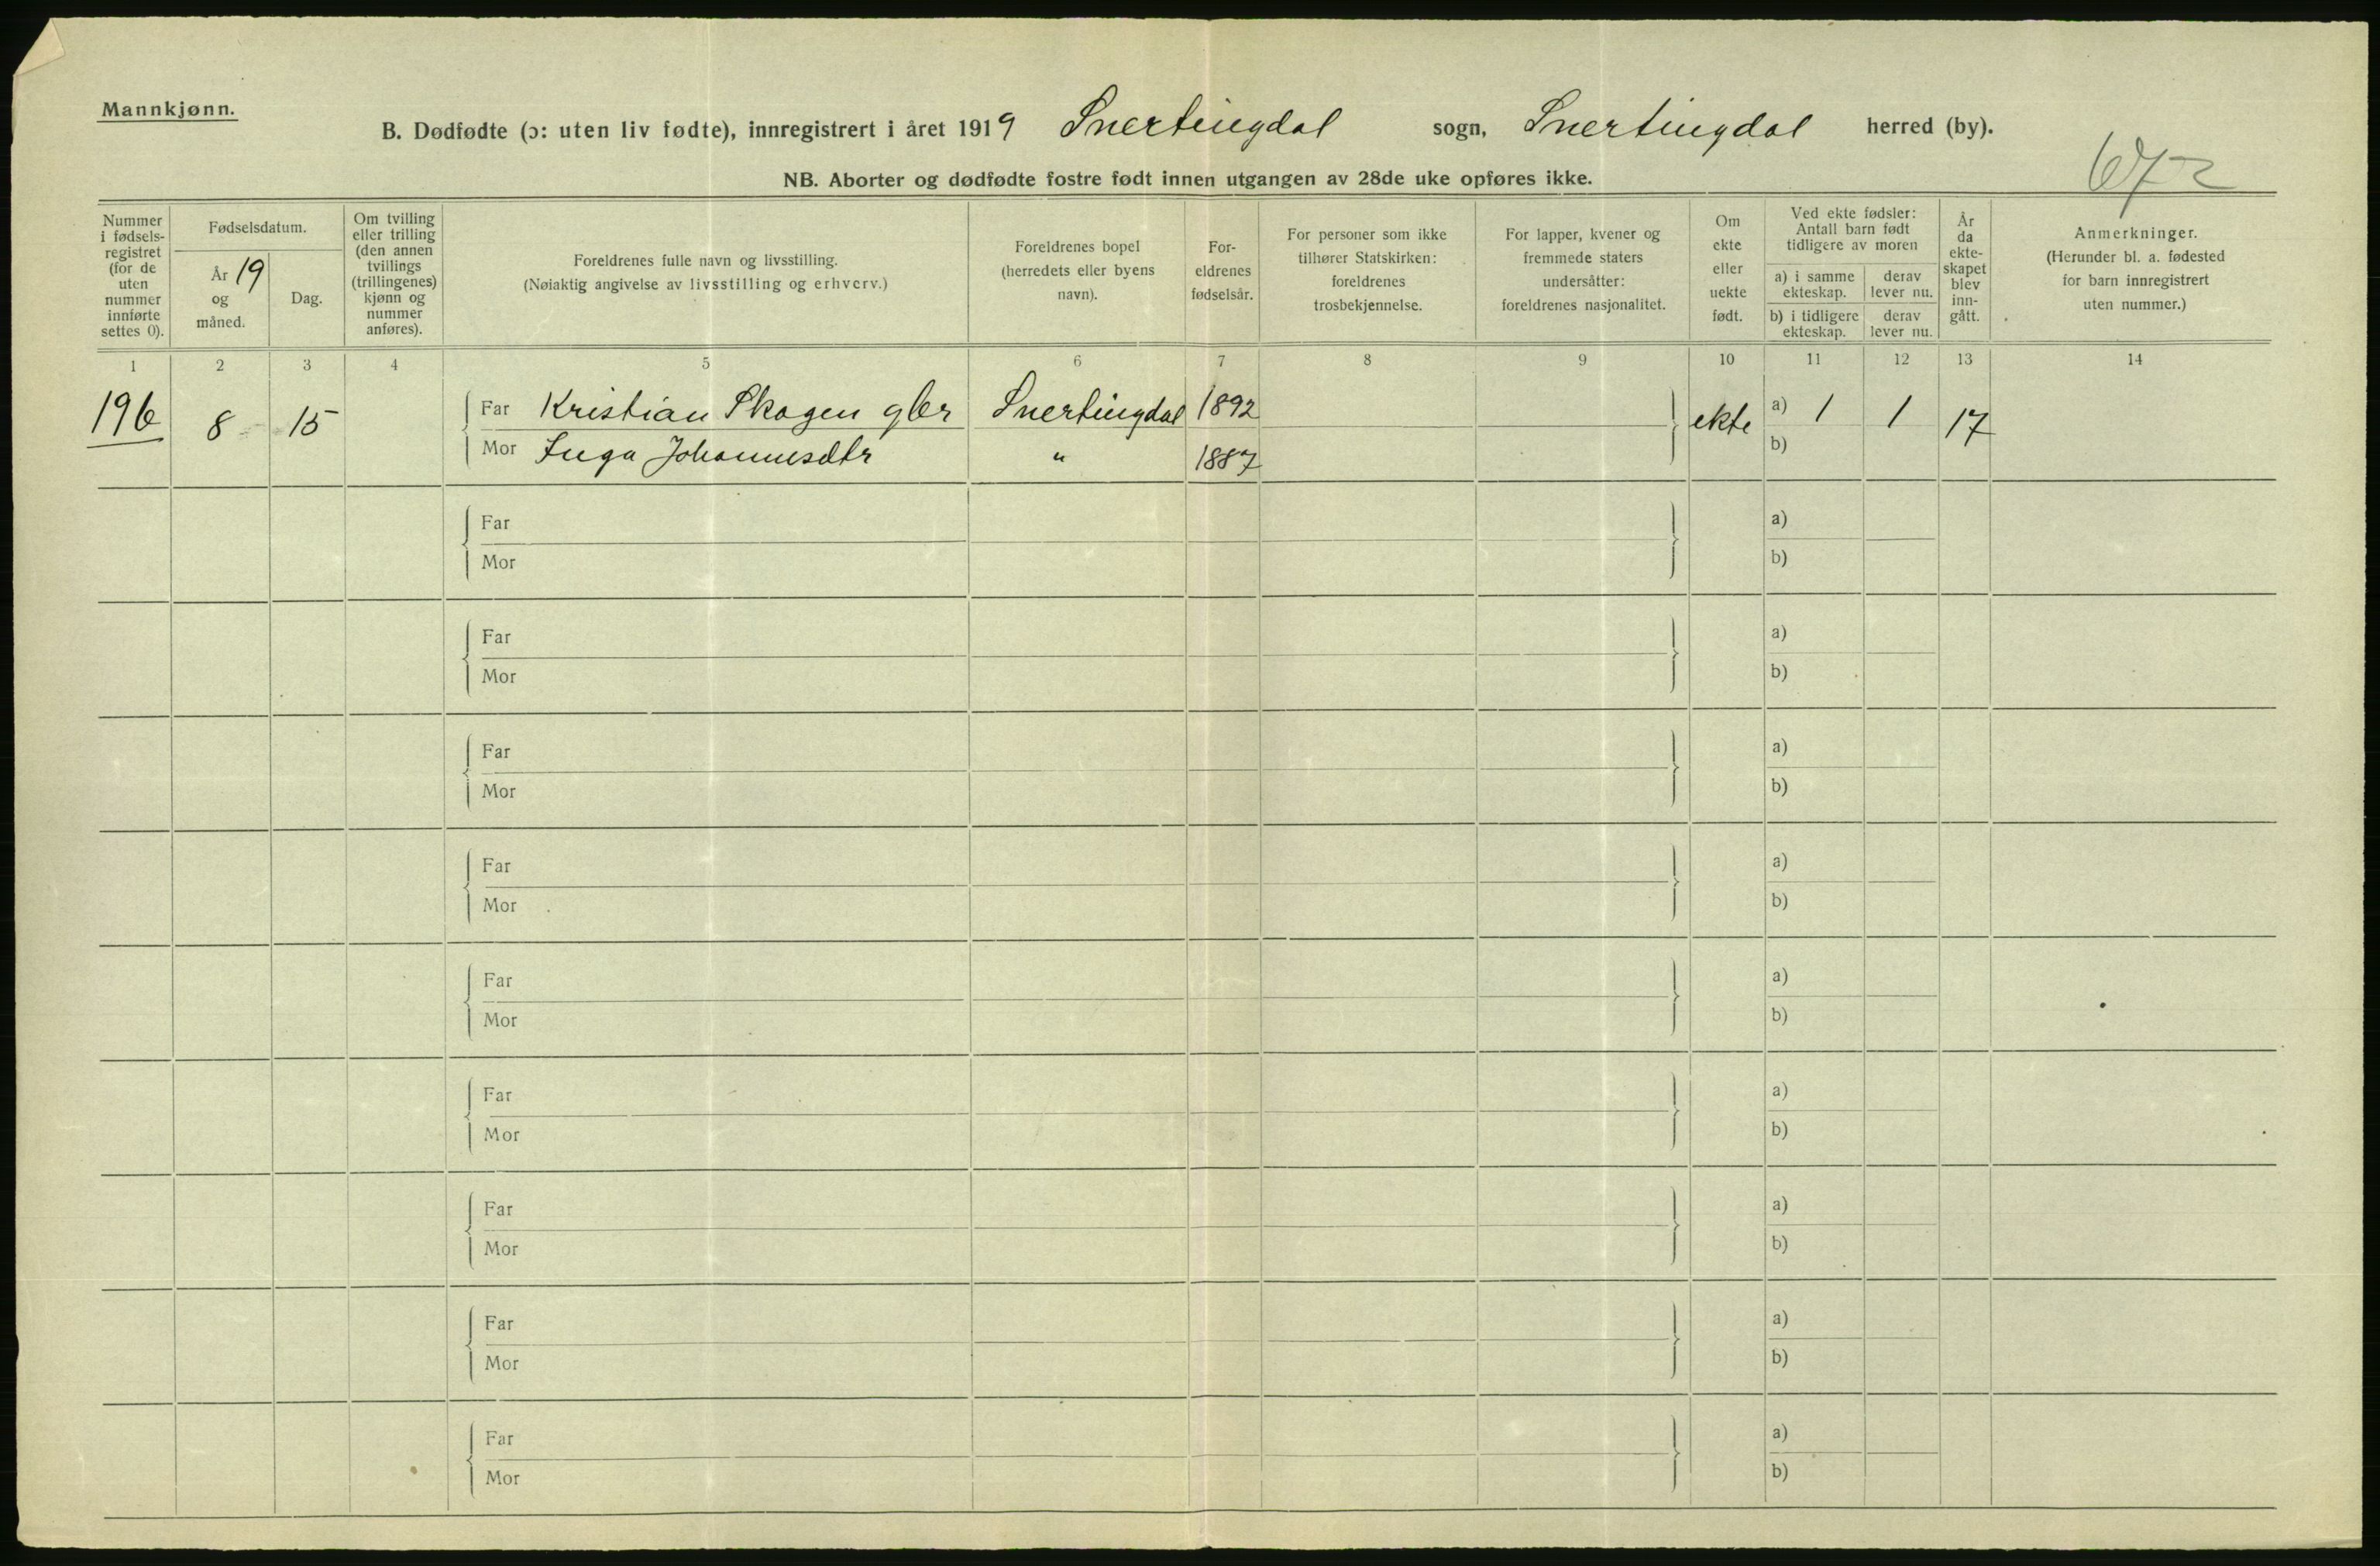 Mannkjønn.
B. Dødfødte (ɔ: uten liv fødte), innregistrert i året 1919 Snertingdal sogn, Snertingdal herred (by).
672
NB. Aborter og dødfødte fostre født innen utgangen av 28de uke opføres ikke.
Nummer i fødsels-registret (for de uten nummer innførte settes 0).
Fødselsdatum.
År 19 og måned.
Dag.
Om tvilling eller trilling (den annen tvillings (trillingenes) kjønn og nummer anføres).
Foreldrenes fulle navn og livsstilling.
(Nøiaktig angivelse av livsstilling og erhverv.)
Foreldrenes bopel (herredets eller byens navn).
For-eldrenes fødselsår.
For personer som ikke tilhører Statskirken: foreldrenes trosbekjennelse.
For lapper, kvener og fremmede staters undersåtter: foreldrenes nasjonalitet.
Om ekte eller uekte født.
Ved ekte fødsler: Antall barn født tidligere av moren
a) i samme ekteskap.
derav lever nu.
b) i tidligere ekteskap.
derav lever nu.
År da ekte-skapet blev inn-gått.
Anmerkninger.
(Herunder bl. a. fødested for barn innregistrert uten nummer.)
1 2 3 4 5 6 7 8 9 10 11 12 13 14
196 8 15 Far Kristian Skogen gbr Snertingdal 1892 ekte a) 1 1 17
Mor Inga Johannesdtr " 1887 b)
Far a)
Mor b)
Far a)
Mor b)
Far a)
Mor b)
Far a)
Mor b)
Far a)
Mor b)
Far a)
Mor b)
Far a)
Mor b)
Far a)
Mor b)
Far a)
Mor b)